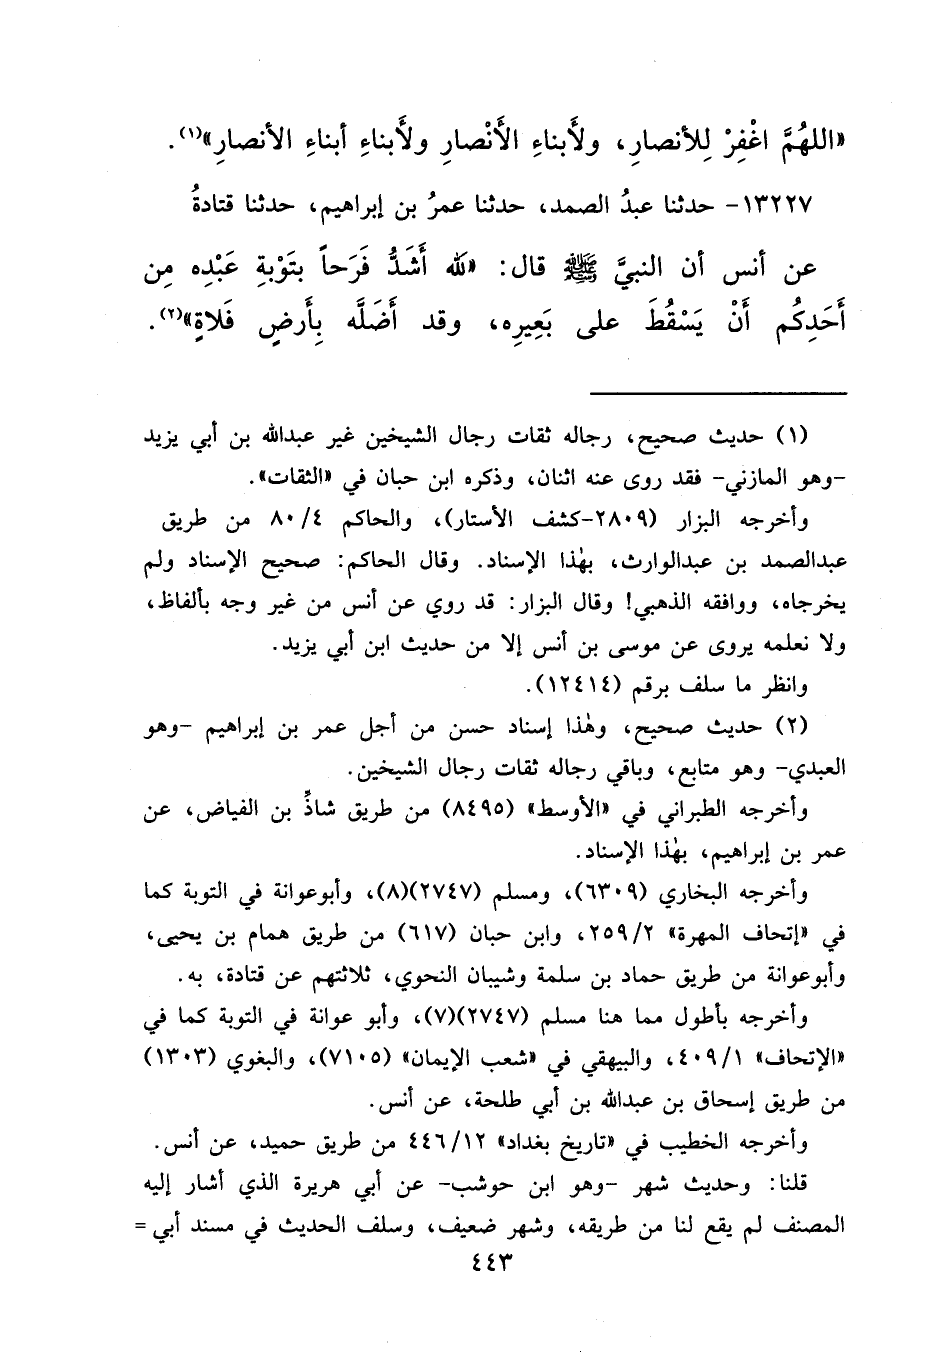 «اللهُمَّ اغْفِرْ لِلأنصارِ، ولأَبناءِ الأَنْصارِ ولأَبناءِ أبناءِ الأنصارِ»(١).
١٣٢٢٧- حدثنا عبدُ الصمد، حدثنا عمرُ بن إبراهيم، حدثنا قتادةُ
عن أنس أن النبيَّ ﷺ قال: «لله أَشَدُّ فَرَحاً بتَوْبةِ عَبْدِه مِن
أَحَدِكُم أَنْ يَسْقُطَ على بَعِيرِه، وقد أَضَلَّه بِأَرضٍ فَلاةٍ»(٢).
(١) حديث صحيح، رجاله ثقات رجال الشيخين غير عبدالله بن أبي يزيد
-وهو المازني- فقد روى عنه اثنان، وذكره ابن حبان في «الثقات».
وأخرجه البزار (٢٨٠٩-كشف الأستار)، والحاكم ٨٠/٤ من طريق
عبدالصمد بن عبدالوارث، بهٰذا الإسناد. وقال الحاكم: صحيح الإسناد ولم
يخرجاه، ووافقه الذهبي! وقال البزار: قد روي عن أنس من غير وجه بألفاظ،
ولا نعلمه يروى عن موسى بن أنس إلا من حديث ابن أبي يزيد.
وانظر ما سلف برقم (١٢٤١٤).
(٢) حديث صحيح، وهٰذا إسناد حسن من أجل عمر بن إبراهيم -وهو
العبدي- وهو متابع، وباقي رجاله ثقات رجال الشيخين.
وأخرجه الطبراني في «الأوسط» (٨٤٩٥) من طريق شاذِّ بن الفياض، عن
عمر بن إبراهيم، بهٰذا الإسناد.
وأخرجه البخاري (٦٣٠٩)، ومسلم (٢٧٤٧)(٨)، وأبوعوانة في التوبة كما
في «إتحاف المهرة» ٢٥٩/٢، وابن حبان (٦١٧) من طريق همام بن يحيى،
وأبوعوانة من طريق حماد بن سلمة وشيبان النحوي، ثلاثتهم عن قتادة، به.
وأخرجه بأطول مما هنا مسلم (٢٧٤٧)(٧)، وأبو عوانة في التوبة كما في
«الإتحاف» ٤٠٩/١، والبيهقي في «شعب الإيمان» (٧١٠٥)، والبغوي (١٣٠٣)
من طريق إسحاق بن عبدالله بن أبي طلحة، عن أنس.
وأخرجه الخطيب في «تاريخ بغداد» ٤٤٦/١٢ من طريق حميد، عن أنس.
قلنا: وحديث شهر -وهو ابن حوشب- عن أبي هريرة الذي أشار إليه
المصنف لم يقع لنا من طريقه، وشهر ضعيف، وسلف الحديث في مسند أبي =
٤٤٣